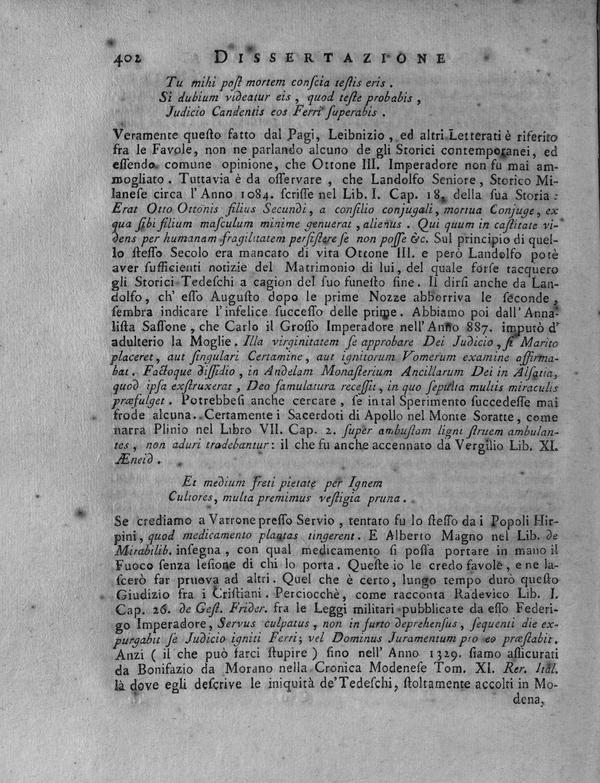 402 DISSERTAZIONE
Tu mihi poſt mortem conſcia teſtis eris .
Si dubium videatur eis , quod teſte probabis ,
Judicio Candentis eos Ferri ſuperabis .
Veramente queſto fatto dal Pagi, Leibnizio , ed altri Letterati è riferito
fra le Favole, non ne parlando alcuno de gli Storici contemporanei, ed
eſſendo comune opinione, che Ottone III. Imperadore non fu mai am-
mogliato . Tuttavia è da oſſervare , che Landolfo Seniore , Storico Mi-
laneſe circa l'Anno 1084. ſcriſſe nel Lib. I. Cap. 18. della ſua Storia :
Erat Otto Ottonis filius Secundi , a conſilio conjugali , mortua Conjuge , ex
qua ſibi filium maſculum minime genuerat , alienus . Qui quum in caſtitate vi-
dens per humanam fragilitatem perſiſtere ſe non poſſe &c. Sul principio di quel-
lo ſteſſo Secolo era mancato di vita Ottone III. e però Landolfo potè
aver ſufficienti notizie del Matrimonio di lui , del quale forſe tacquero
gli Storici Tedeſchi a cagion del ſuo funeſto fine . Il dirſi anche da Lan-
dolfo, ch' eſſo Auguſto dopo le prime Nozze abborriva le ſeconde ,
ſembra indicare l'infelice ſucceſſo delle prime . Abbiamo poi dall'Anna-
liſta Saſſone , che Carlo il Groſſo Imperadore nell'Anno 887. imputò d'
adulterio la Moglie . Illa virginitatem ſe approbare Dei Judicio , ſi Marito
placeret , aut ſingulari Certamine , aut ignitorum Vomerum examine affirma-
bat . Factoque diſſidio , in Andelam Monaſterium Ancillarum Dei in Alſatia,
quod ipſa exſtruxerat , Deo famulatura receſſit , in quo ſepulta multis miraculis
præfulget . Potrebbeſi anche cercare , ſe in tal Sperimento ſuccedeſſe mai
frode alcuna . Certamente i Sacerdoti di Apollo nel Monte Soratte , come
narra Plinio nel Libro VII. Cap. 2. ſuper ambuſtam ligni ſtruem ambulan-
tes , non aduri tradebantur : il che fu anche accennato da Vergilio Lib. XI.
Æneid .
Et medium freti pietate per Ignem
Cultores , multa premimus veſtigia pruna .
Se crediamo a Varrone preſſo Servio , tentato fu lo ſteſſo da i Popoli Hir-
pini , quod medicamento plantas tingerent . E Alberto Magno nel Lib. de
Mirabilib. inſegna , con qual medicamento ſi poſſa portare in mano il
Fuoco ſenza leſione di chi lo porta . Queſte io le credo favole , e ne la-
ſcerò far pruova ad altri . Quel che è certo , lungo tempo durò queſto
Giudizio fra i Criſtiani . Perciocchè , come racconta Radevico Lib. I.
Cap. 26. de Geſt. Frider. fra le Leggi militari pubblicate da eſſo Federi-
go Imperadore , Servus culpatus , non in furto deprehenſus , ſequenti die ex-
purgabit ſe Judicio igniti Ferri ; vel Dominus Juramentum pro eo præſtabit .
Anzi ( il che può farci ſtupire ) fino nell' Anno 1329. ſiamo aſſicurati
da Bonifazio da Morano nella Cronica Modeneſe Tom. XI. Rer. Ital.
là dove egli deſcrive le iniquità de' Tedeſchi , ſtoltamente accolti in Mo-
dena,